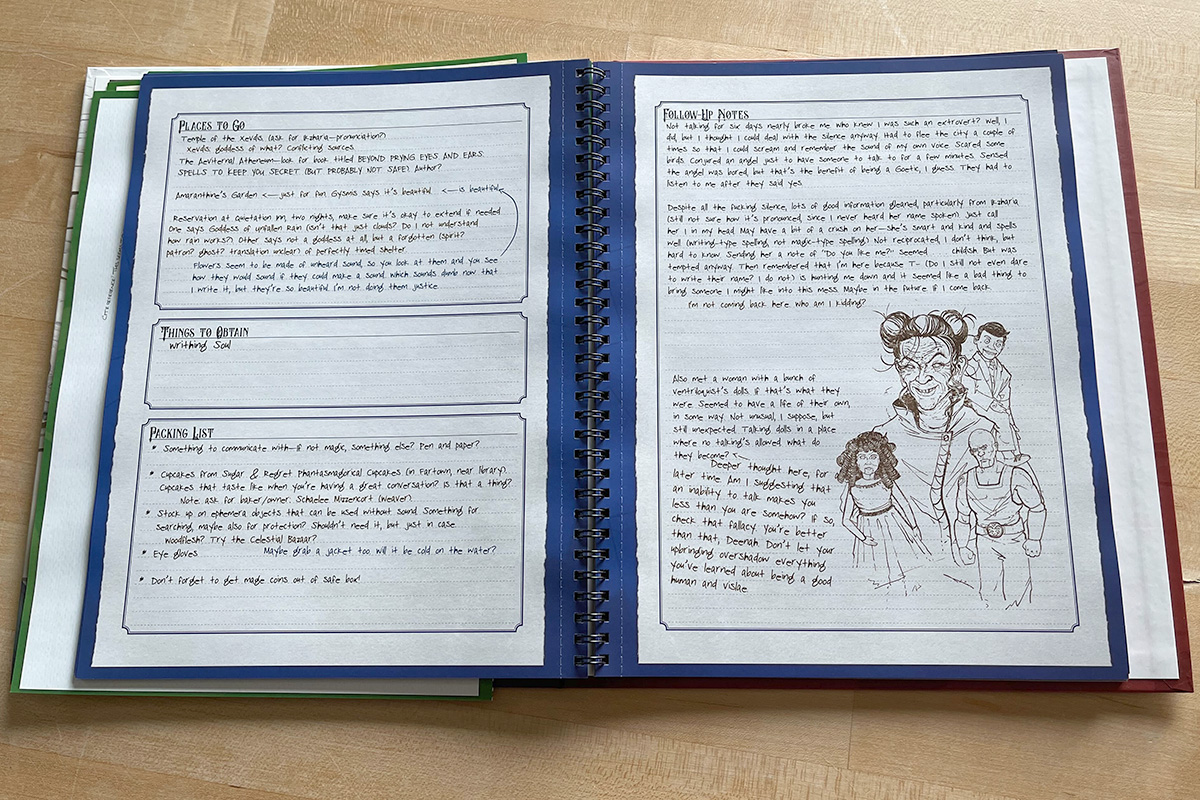 PLACES TO GO
Temple of the Xevids (ask for Kzharia—pronunciation?)
Xevids, goddess of what? Conflicting sources.
The Aeviternal Atheneum—look for book titled BEYOND PRYING EYES AND EARS:
SPELLS TO KEEP YOU SECRET (BUT PROBABLY NOT SAFE). Author?
Amaranthine's Garden <—just for fun. Gysmis says it's beautiful. <—is beautiful
Reservation at Quietation Inn, two nights, make sure it's okay to extend if needed
One says Goddess of unfallen Rain (isn't that just clouds? Do I not understand
how rain works?) Other says not a goddess at all, but a forgotten (spirit?
patron? ghost? translation unclear) of perfectly timed shelter.
Flowers seem to be made of unheard sound, so you look at them and you see
how they would sound if they could make a sound which sounds dumb now that
I write it, but they're so beautiful I'm not doing them justice.
THINGS TO OBTAIN
Writhing Soul
PACKING LIST
• Something to communicate with—if not magic, something else? Pen and paper?
• Cupcakes from Sugar & Regret Phantasmagorical Cupcakes (in Fartown, near library).
Cupcakes that taste like when you're having a great conversation? Is that a thing?
Note: ask for baker/owner: Schaelee Mizzencort (Weaver)
• Stock up on ephemera objects that can be used without sound. Something for
searching, maybe also for protection? Shouldn't need it, but just in case.
Woodflesh? Try the Celestial Bazaar?
• Eye gloves Maybe grab a jacket too will it be cold on the water?
• Don't forget to get mage coins out of safe box!
FOLLOW-UP NOTES
Not talking for six days nearly broke me who knew I was such an extrovert? Well, I
did, but I thought I could deal with the silence anyway. Had to flee the city a couple of
times so that I could scream and remember the sound of my own voice. Scared some
birds. Conjured an angel just to have someone to talk to for a few minutes. Sensed
the angel was bored, but that's the benefit of being a Goetic, I guess. They had to
listen to me after they said yes.
Despite all the fucking silence, lots of good information gleaned, particularly from Kzharia
(still not sure how it's pronounced, since I never heard her name spoken) just call
her I in my head. May have a bit of a crush on her—she's smart and kind and spells
well (writing-type spelling, not magic-type spelling). Not reciprocated, I don't think, but
hard to know. Sending her a note of "Do you like me?" seemed childish. But was
tempted anyway. Then remembered that I'm here because T— (Do I still not even dare
to write their name? I do not) is hunting me down and it seemed like a bad thing to
bring someone I might like into this mess. Maybe in the future if I come back.
I'm not coming back here who am I kidding?
Also met a woman with a bunch of
ventriloquist's dolls if that's what they
were. Seemed to have a life of their own,
in some way. Not unusual, I suppose, but
still unexpected. Talking dolls in a place
where no talking's allowed what do
they become? <—
Deeper thought here, for
later time. Am I suggesting that
an inability to talk makes you
less than you are somehow? If so,
check that fallacy, you're better
than that, Deenah. Don't let your
upbringing overshadow everything
you've learned about being a good
human and vislae.